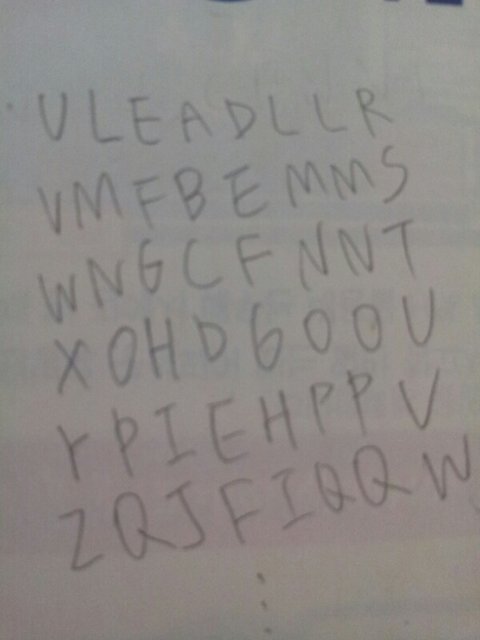 ULEADLLR
VMFBEMMS
WNGCFNNT
XOHDGOOU
YPIEHPPV
ZQJFIQQW
⋮